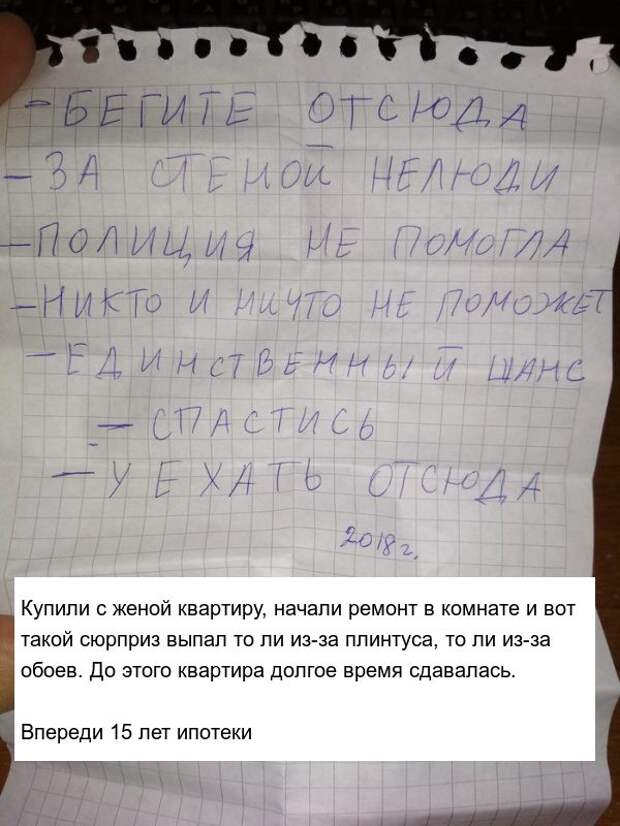 - БЕГИТЕ ОТСЮДА
- ЗА СТЕНОЙ НЕЛЮДИ
- ПОЛИЦИЯ НЕ ПОМОГЛА
- НИКТО И НИЧТО НЕ ПОМОЖЕТ
- ЕДИНСТВЕННЫЙ ШАНС
- СПАСТИСЬ
- УЕХАТЬ ОТСЮДА
2018 г.
Купили с женой квартиру, начали ремонт в комнате и вот
такой сюрприз выпал то ли из-за плинтуса, то ли из-за
обоев. До этого квартира долгое время сдавалась.
Впереди 15 лет ипотеки